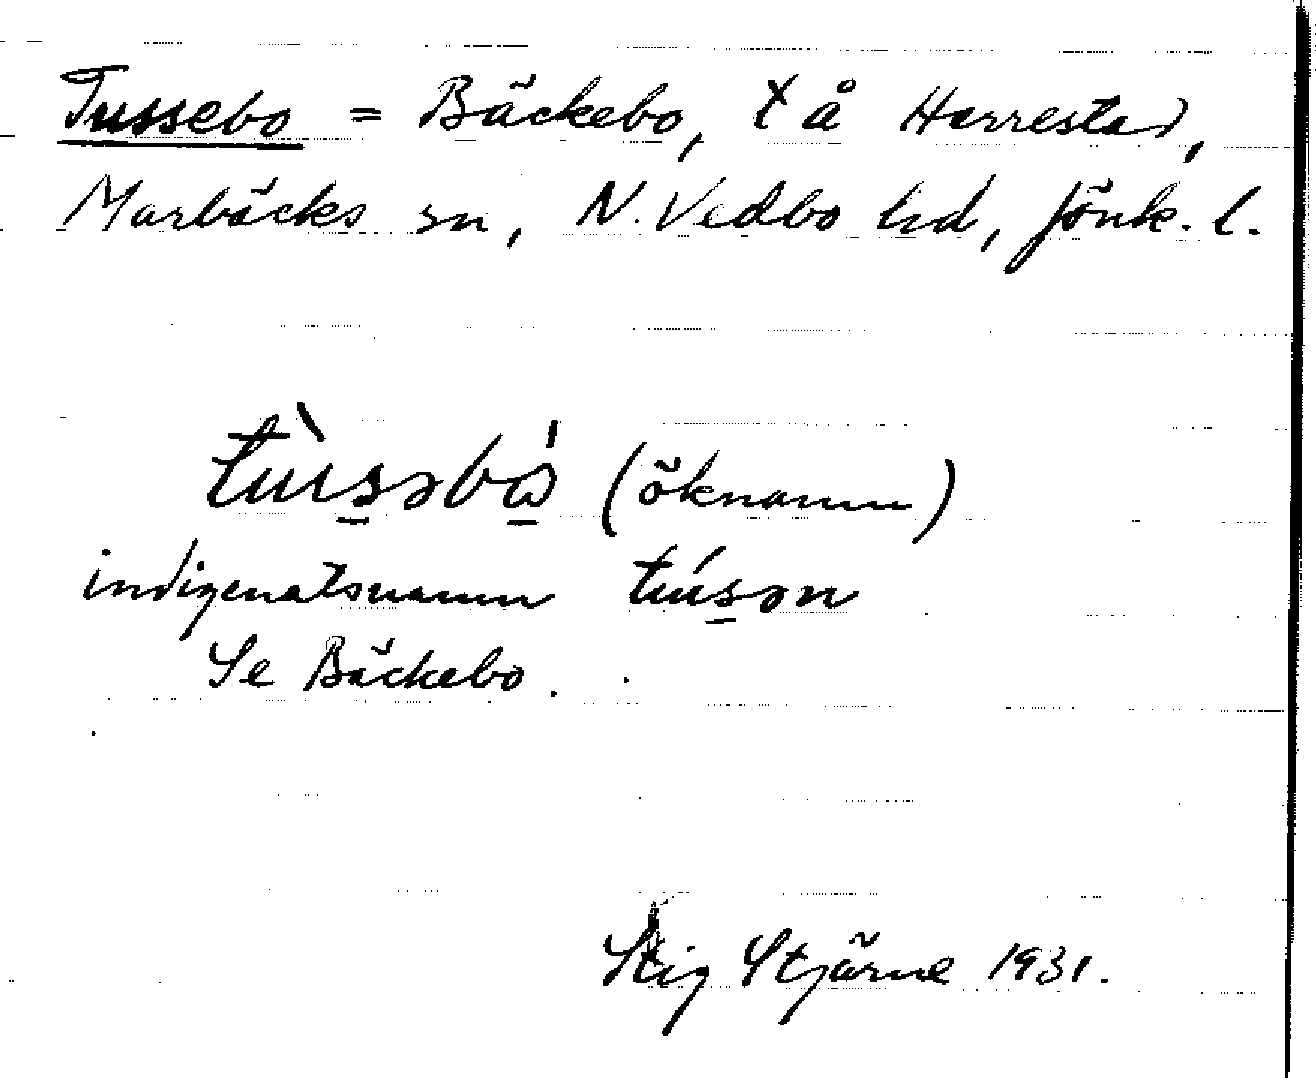 Tussebo = Bäckebo, t å Harrestad,
Marbäcks sn, N. Vedbo hd, Jönk. l.
tùsəbo̱ˈ (öknamn)
indigenatsnamn túsən
Se Bäckebo.
Stig Stjärne 1931.